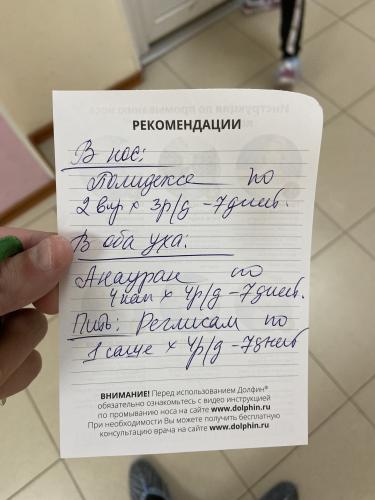 РЕКОМЕНДАЦИИ
В нос:
Полидекса по
2 впр х 3р/д - 7 дней.
В оба уха:
Анауран по
4 кап х 4р/д - 7 дней.
Пить: Реглисам по
1 саше х 4р/д - 7 дней
ВНИМАНИЕ! Перед использованием Долфин®
обязательно ознакомьтесь с видео инструкцией
по промыванию носа на сайте www.dolphin.ru
При необходимости Вы можете получить бесплатную
консультацию врача на сайте www.dolphin.ru